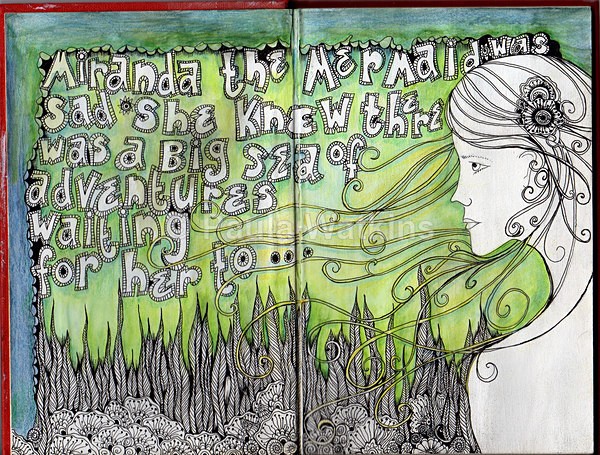 Miranda the Mermaid was
Sad * She Knew there
was a Big Sea of
adventures
waiting
for her to ...
Paula Watkins